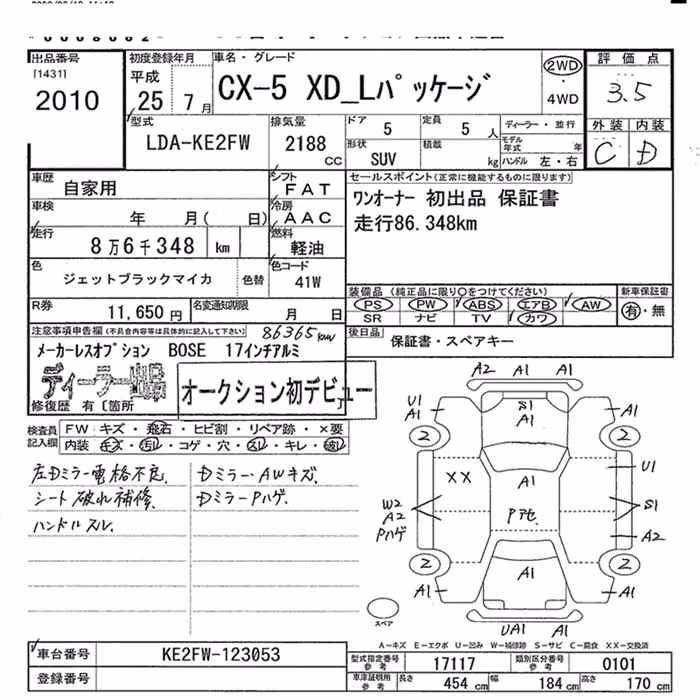 出品番号
[1431]
2010
初度登録年月
平成
25 年 7 月
車名・グレード
CX-5 XD_Lパッケージ
2WD
・
4WD
評価点
3.5
外装 内装
C D
型式
LDA-KE2FW
排気量
2188
CC
ドア 5
定員 5 人
ディーラー・並行
形状
SUV
積載
kg
モデル年式 年
ハンドル 左・右
車歴
自家用
シフト
FAT
セールスポイント(正常に機能するものに限ります)
ワンオーナー 初出品 保証書
走行86.348km
車検
年 月( 日)
冷房
AAC
走行
8万6千348 km
燃料
軽油
色
ジェットブラックマイカ
色替
色コード
41W
装備品(純正品に限り○をつけてください)
PS PW ABS エアB AW
SR ナビ TV カワ
新車保証書
有・無
R券
11,650 円
名変通知期限
月 日
後日品
保証書・スペアキー
注意事項申告欄(不具合内容等は具体的に記入して下さい)
86365km
メーカーレスオプション BOSE 17インチアルミ
ディーラー出品
オークション初デビュー
修復歴 有〔箇所
検査員記入欄
FW キズ・飛石・ヒビ割・リペア跡・×要
内装 キズ・汚れ・コゲ・穴・スレ・キレ・破れ
左Dミラー電格不良、
シート破れ補修、
ハンドルスレ、
Dミラー・AWキズ、
DミラーPハゲ、
A2 A1 A1
U1
A1
S1
A1
A1
2
2
U1
XX
A1
W2
A2
Pハゲ
Pアセ
S1
A2
2
2
A1
A1
A1
UA1 A1
スペア
A-キズ E-エクボ U-凹み W-補修跡 S-サビ C-腐食 XX-交換済
車台番号
KE2FW-123053
登録番号
型式指定番号
参考
17117
類別区分番号
参考
0101
車庫証明用
参考
長さ 454 cm
幅 184 cm
高さ 170 cm